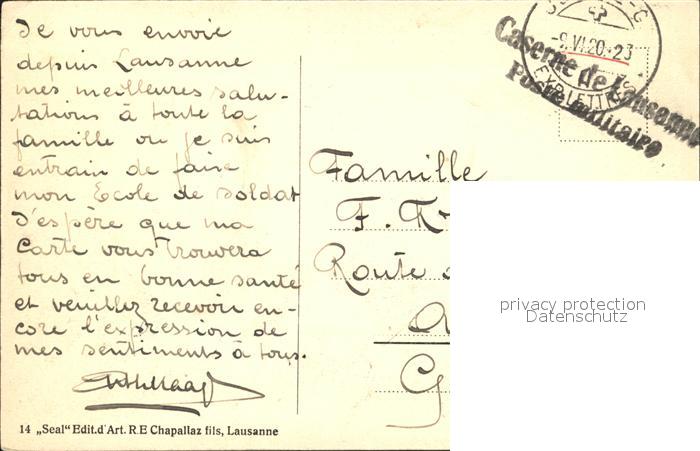 Je vous envoie
depuis Lausanne
mes meilleures salu-
tations à toute la
famille ou je suis
entrain de faire
mon Ecole de soldat
J'espère que ma
carte vous trouvera
tous en bonne santé
et veuillez recevoir en-
core l'expression de
mes sentiments à tous.
14 „Seal“ Edit. d'Art. R.E Chapallaz fils, Lausanne
-9.VI.20.-23
EXP. LETTRES
Caserne de Lausanne
Poste militaire
Famille
F.
Route
privacy protection
Datenschutz